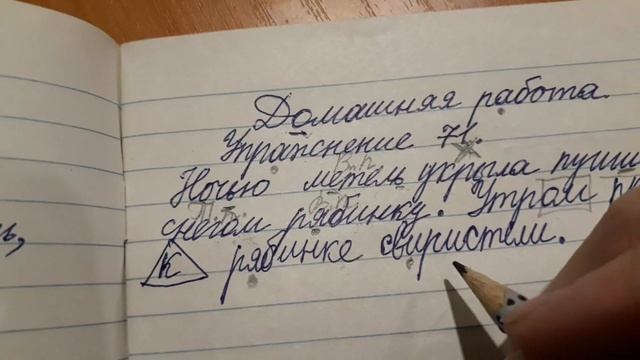 Домашная работа.
Упражнение 71.
В.п.
Ночью метель укрыла пуши
снегом рябинку. Утром
К рябинке свиристели.